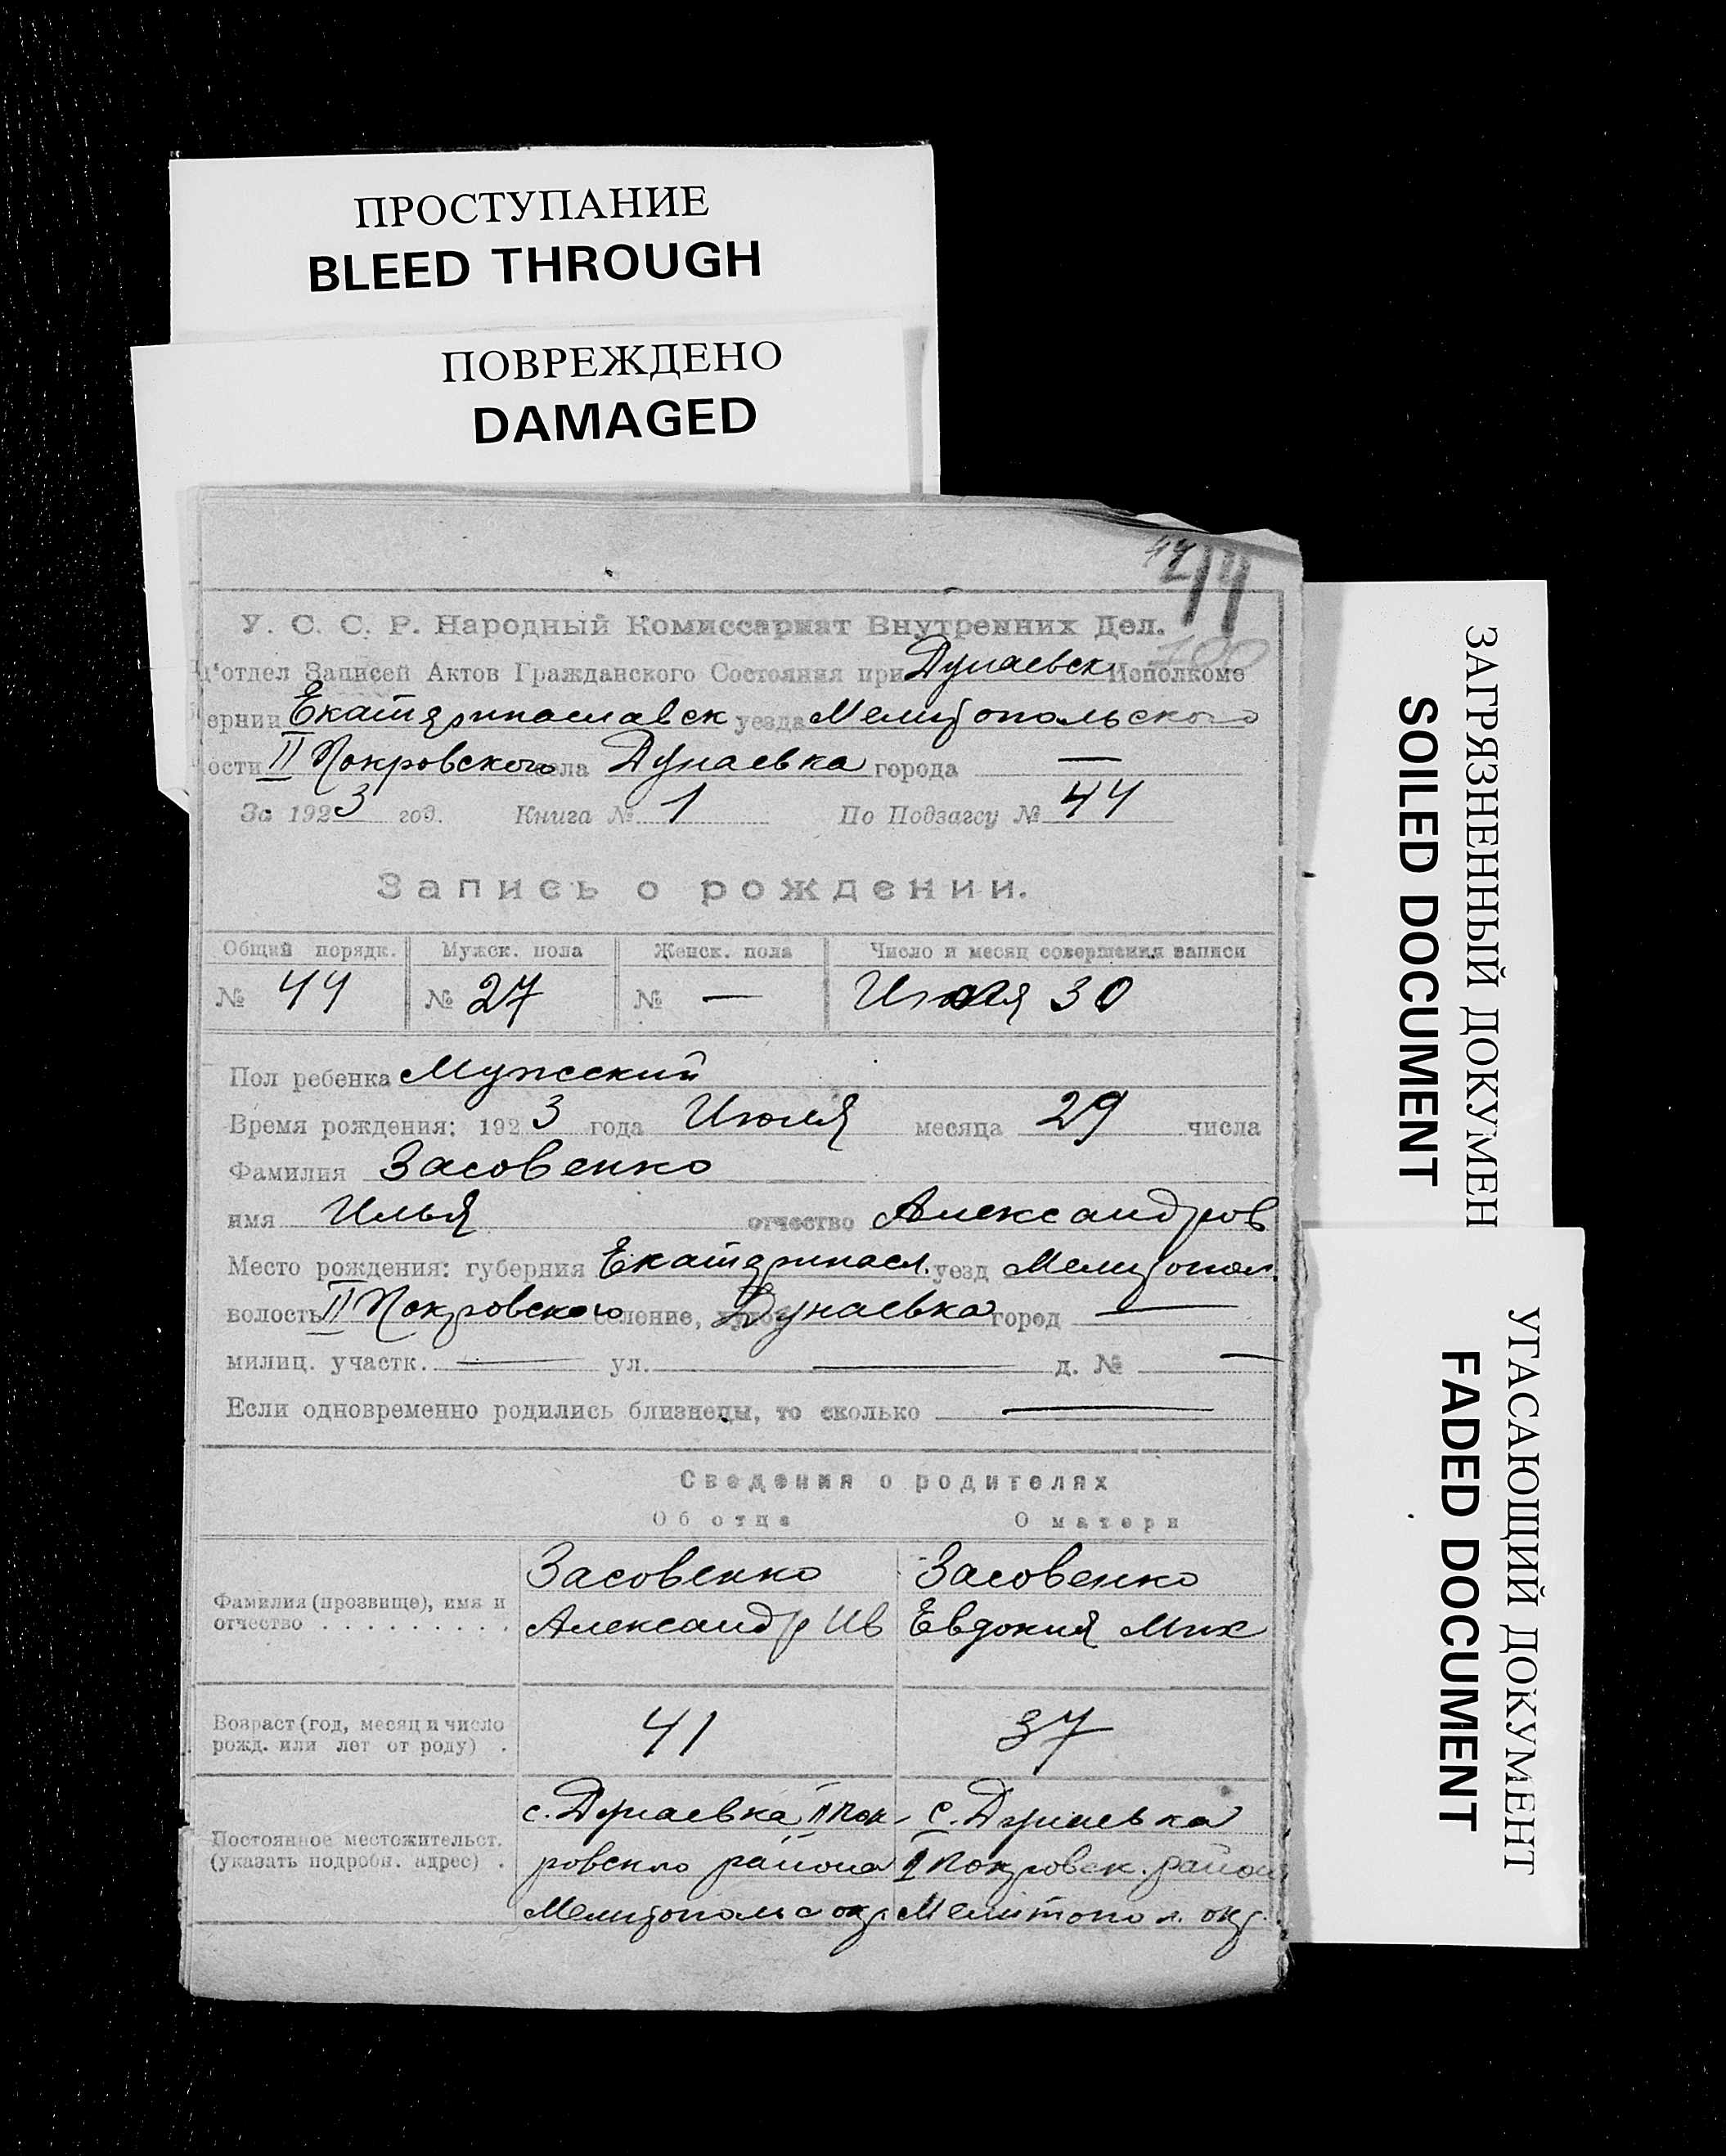 ПРОСТУПАНИЕ
BLEED THROUGH
ПОВРЕЖДЕНО
DAMAGED
44
44
100
У. С. С. Р. Народный Комиссариат Внутренних Дел.
д'отдел Записей Актов Гражданского Состояния при Дунаевск Исполкоме
ернии Екатеринославск уезда Мелитопольского
ости II Покровского ела Дунаевка города —
За 1923 год. Книга № 1 По Подзагсу № 44
Запись о рождении.
Общий порядк. Мужск. пола Женск. пола Число и месяц совершения записи
№ 44 № 27 № — Июля 30
Пол ребенка Мужеский
Время рождения: 1923 года Июля месяца 29 числа
Фамилия Засовенко
имя Илья отчество Александров
Место рождения: губерния Екатеринасл. уезд Мелитопол.
волость II Покровского селение, Дунаевка город —
милиц. участк. — ул. — д. № —
Если одновременно родились близнецы, то сколько —
Сведения о родителях
Об отце О матери
Фамилия (прозвище), имя и отчество . . . . . . . . .
Засовенко
Александр Ив
Засовенко
Евдокия Мих
Возраст (год, месяц и число рожд. или лет от роду) .
41
37
Постоянное местожительст. (указать подробн. адрес) .
с. Дунаевка II Пок-
ровского района
Мелитополь окр.
с. Дунаевка
II Покровск. район
Мелитопол. окр.
ЗАГРЯЗНЕННЫЙ ДОКУМЕН
SOILED DOCUMENT
УГАСАЮЩИЙ ДОКУМЕНТ
FADED DOCUMENT